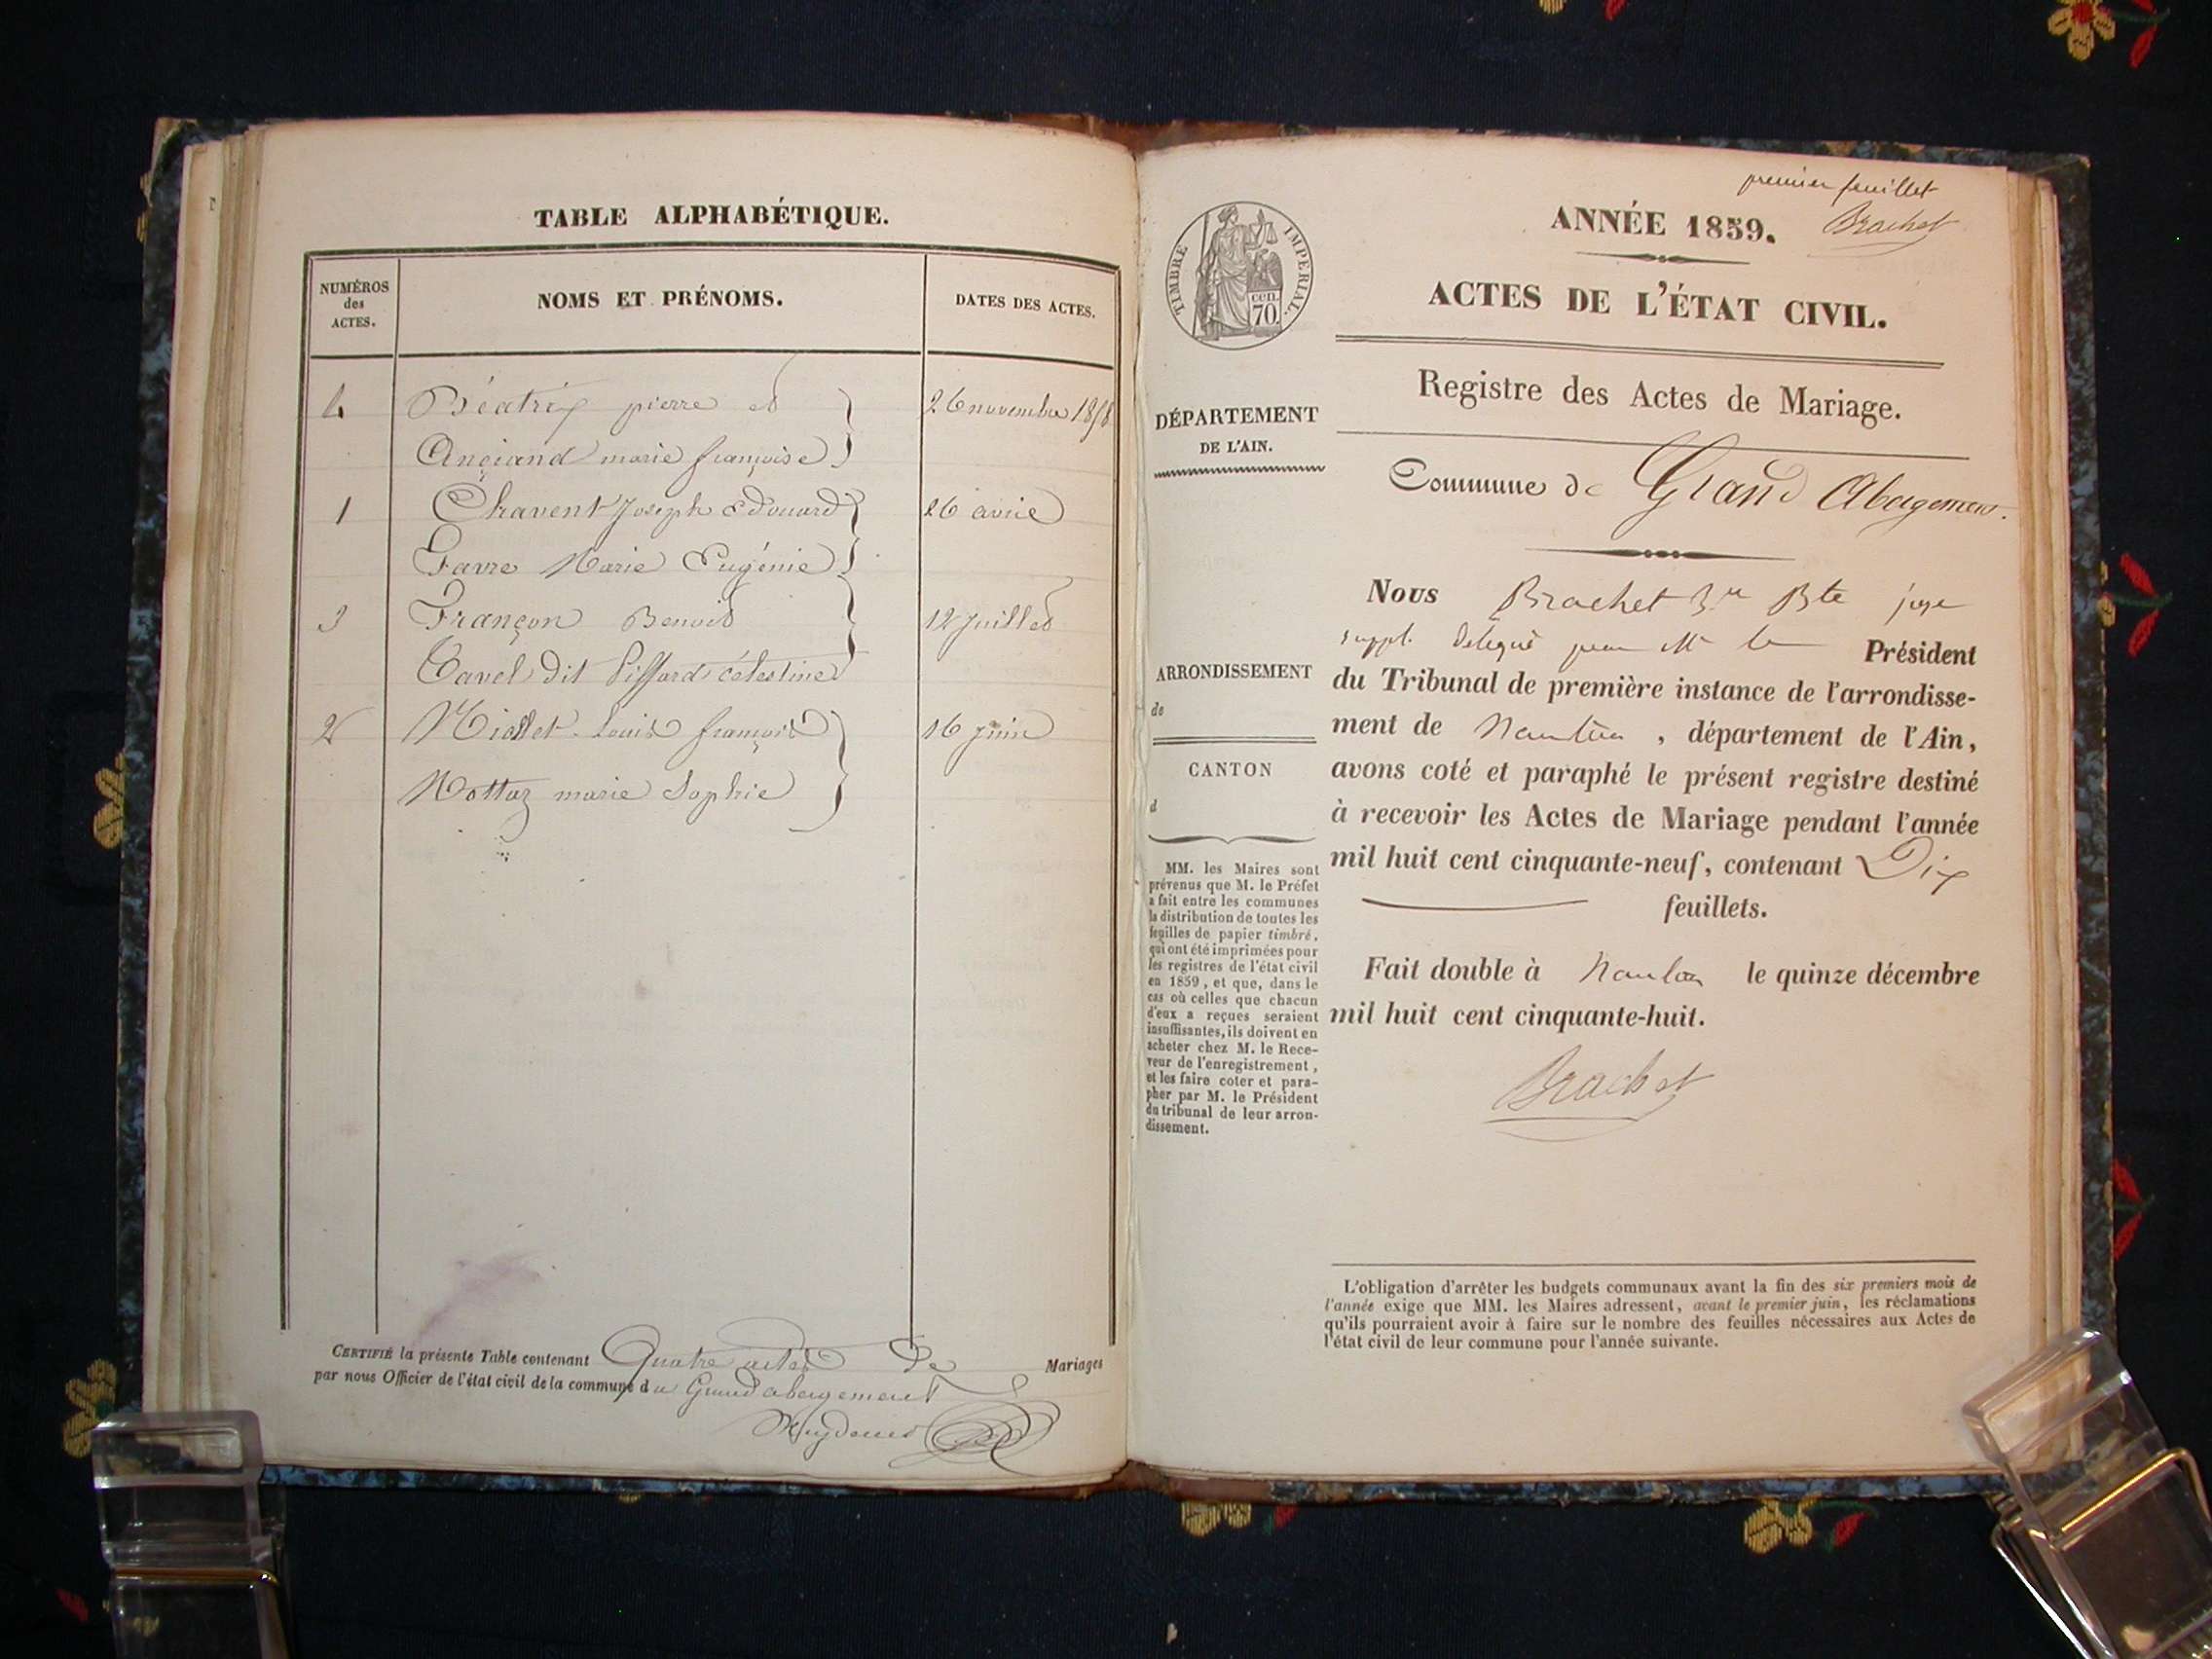 TABLE ALPHABÉTIQUE.
NUMÉROS
des
ACTES.
NOMS ET PRÉNOMS.
DATES DES ACTES.
4 Béatrix pierre et 26 novembre 1858
marie françoise
1 Chavent Joseph Edouard 26 avril
Favre Marie Eugénie
3 Françon Benoit 12 Juillet
Tavel dit Piffard célestine
2 Miollet Louis françois 16 Juin
Mottaz marie Sophie
CERTIFIÉ la présente Table contenant Quatre actes de Mariages
par nous Officier de l'état civil de la commune du Grand abergement
premier feuillet
Brachet
TIMBRE IMPERIAL.
cen.
70.
ANNÉE 1859.
ACTES DE L'ÉTAT CIVIL.
Registre des Actes de Mariage.
DÉPARTEMENT
DE L'AIN.
ARRONDISSEMENT
de
CANTON
d
MM. les Maires sont
prévenus que M. le Préfet
a fait entre les communes
la distribution de toutes les
feuilles de papier timbré,
qui ont été imprimées pour
les registres de l'état civil
en 1859, et que, dans le
cas où celles que chacun
d'eux a reçues seraient
insuffisantes, ils doivent en
acheter chez M. le Rece-
veur de l'enregistrement,
et les faire coter et para-
pher par M. le Président
du tribunal de leur arron-
dissement.
Commune de Grand Abergement.
Nous Brachet Bte juge
suppl. délégué par Mr le Président
du Tribunal de première instance de l'arrondisse-
ment de Nantua, département de l'Ain,
avons coté et paraphé le présent registre destiné
à recevoir les Actes de Mariage pendant l'année
mil huit cent cinquante-neuf, contenant Dix
feuillets.
Fait double à Nantua le quinze décembre
mil huit cent cinquante-huit.
Brachet
L'obligation d'arrêter les budgets communaux avant la fin des six premiers mois de
l'année exige que MM. les Maires adressent, avant le premier juin, les réclamations
qu'ils pourraient avoir à faire sur le nombre des feuilles nécessaires aux Actes de
l'état civil de leur commune pour l'année suivante.